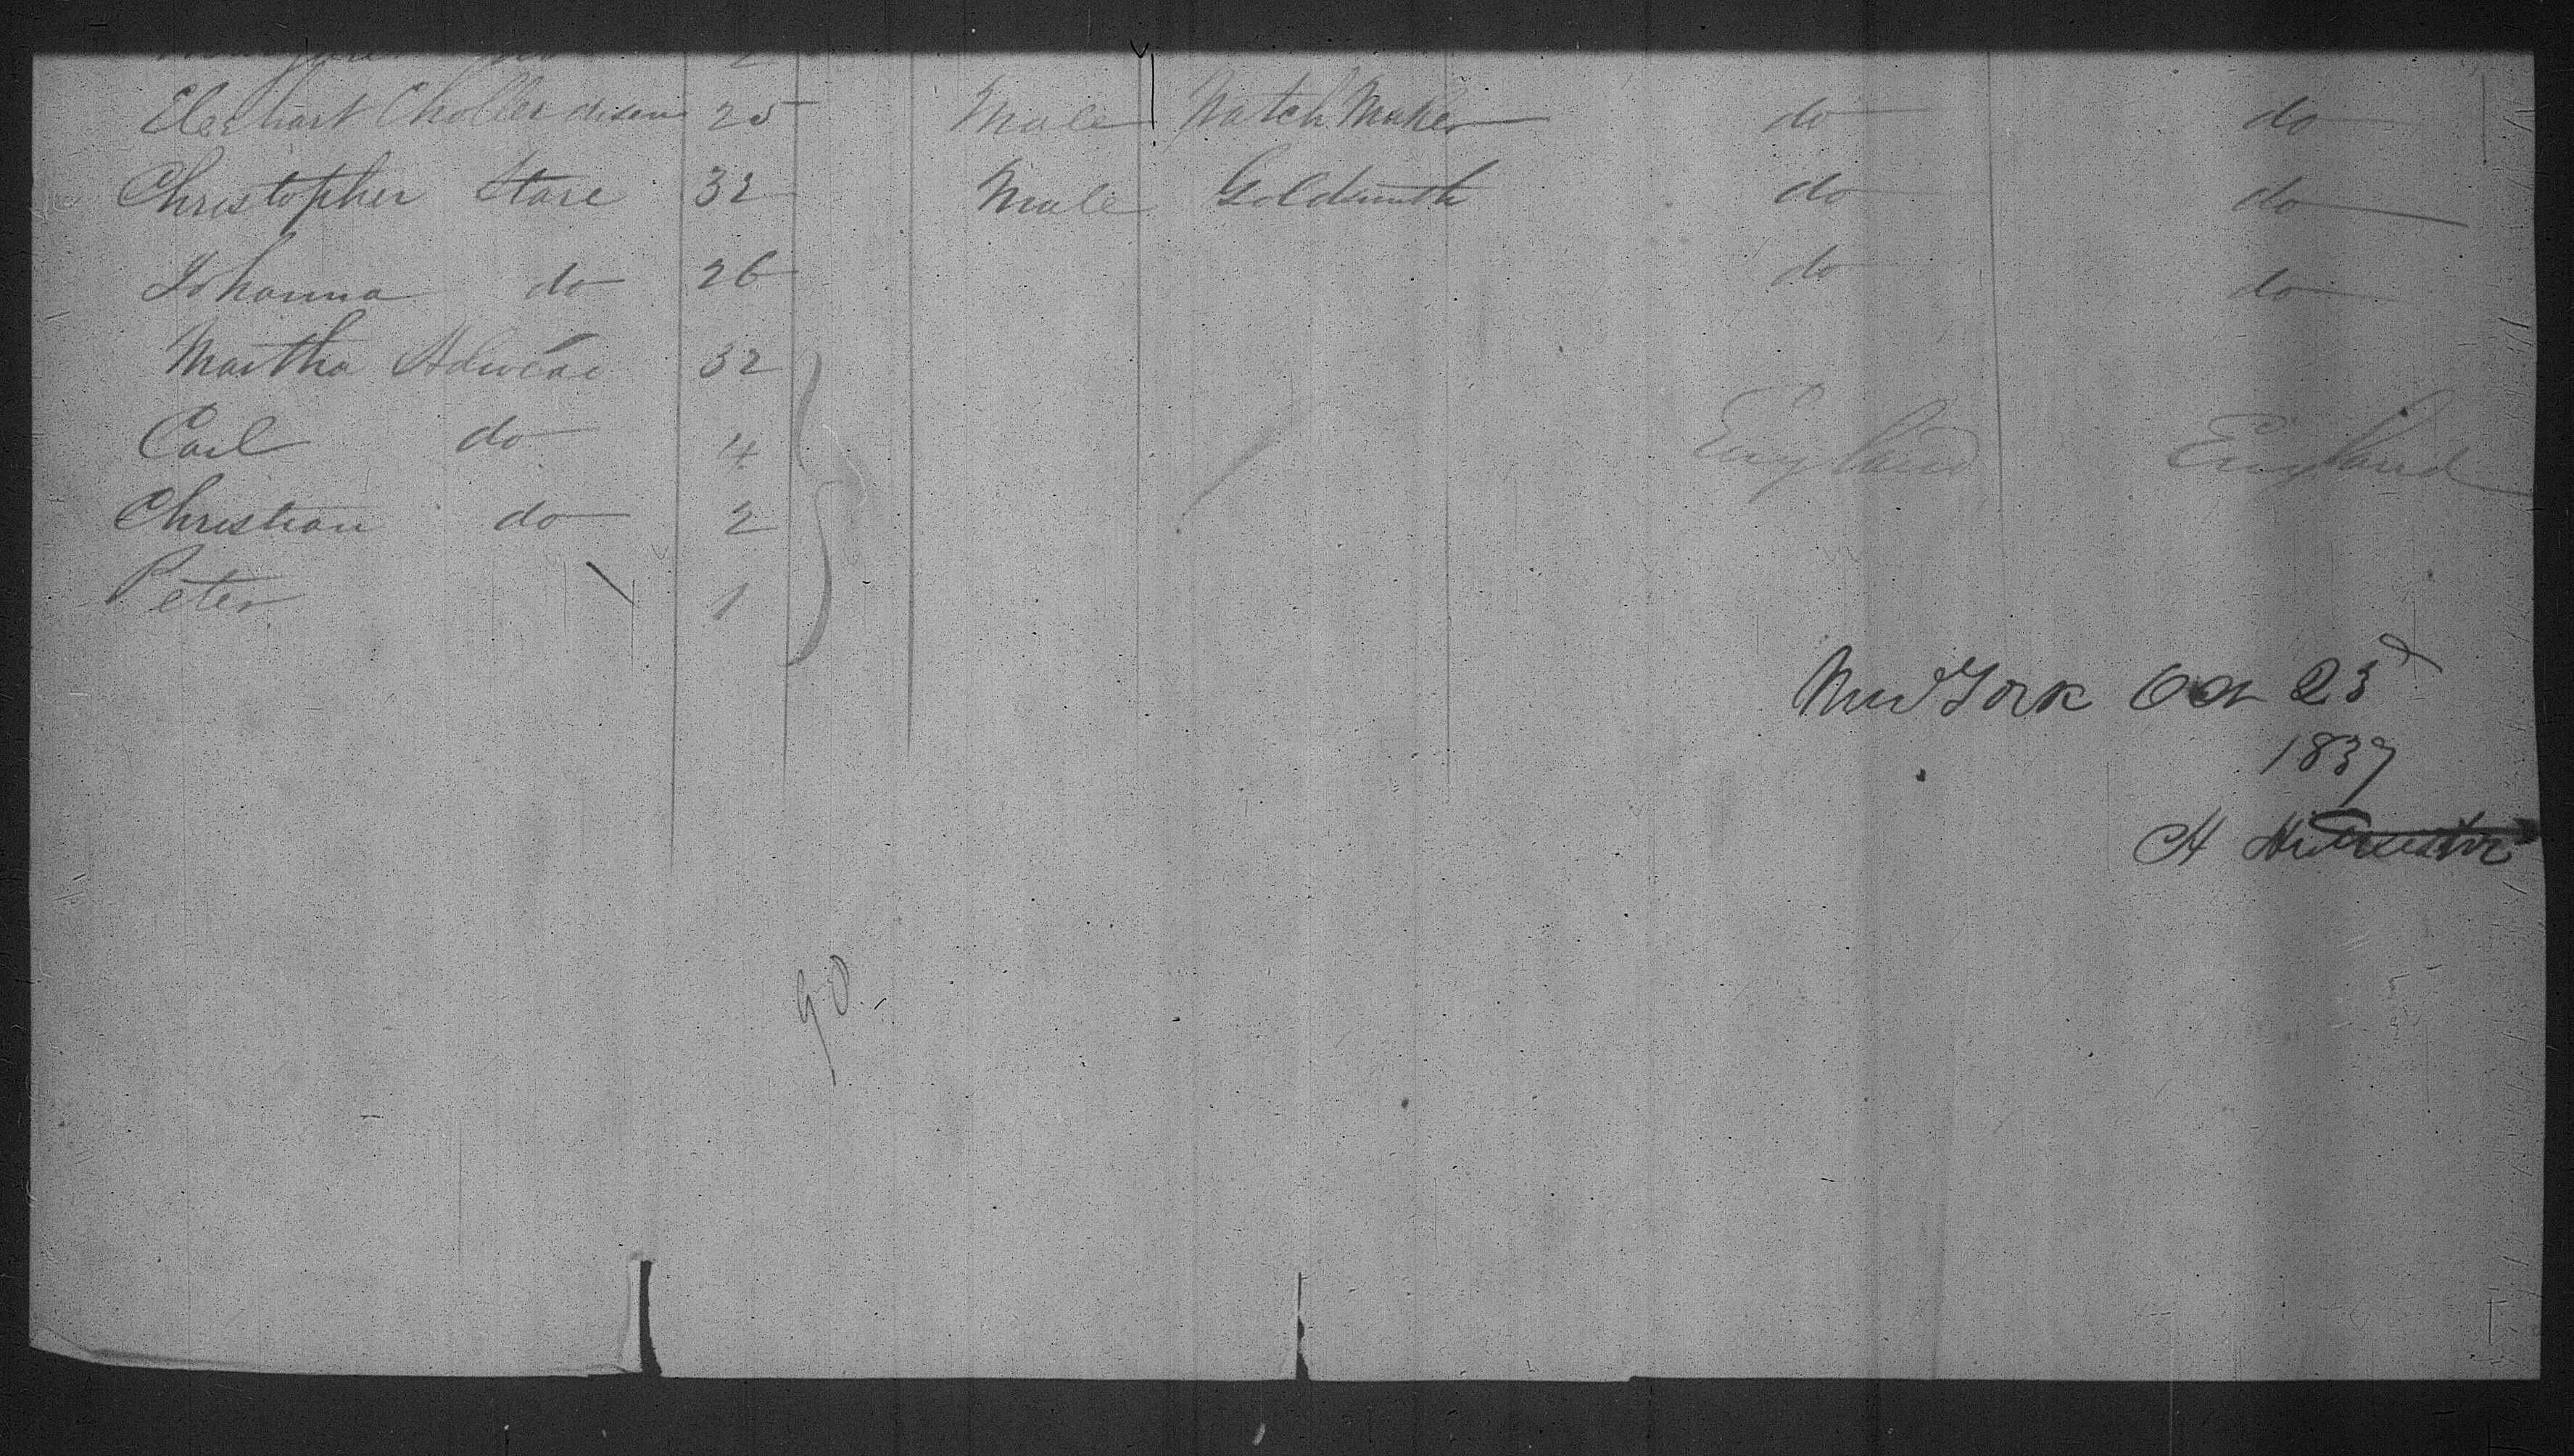 25 Male Watch Maker do do
Christopher Stare 32 Male Goldsmith do do
Johanna do 26 do do
Martha 32
Carl do 4 England England
Christian do 2
Peter 1
New York Oct 23d
1837
H
90